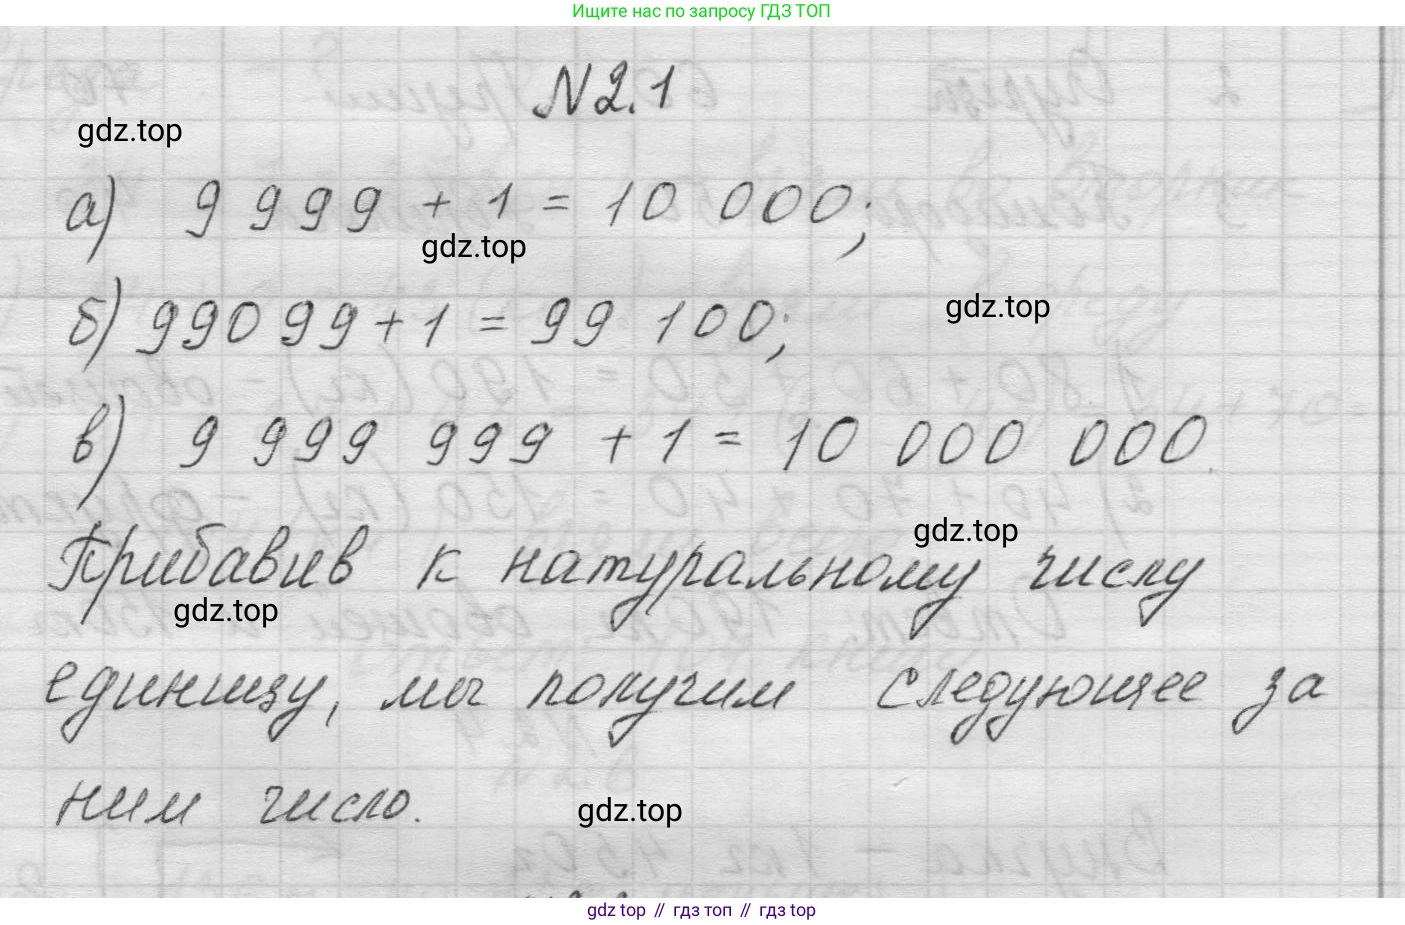 Ищите нас по запросу ГДЗ ТОП
№2.1
gdz.top
а) 9 999 + 1 = 10 000;
gdz.top
б) 99099 + 1 = 99 100;
gdz.top
в) 9 999 999 + 1 = 10 000 000.
Прибавив к натуральному числу
gdz.top
gdz.top
единицу, мы получим следующее за
ним число.
gdz.top
gdz top // гдз топ // гдз top